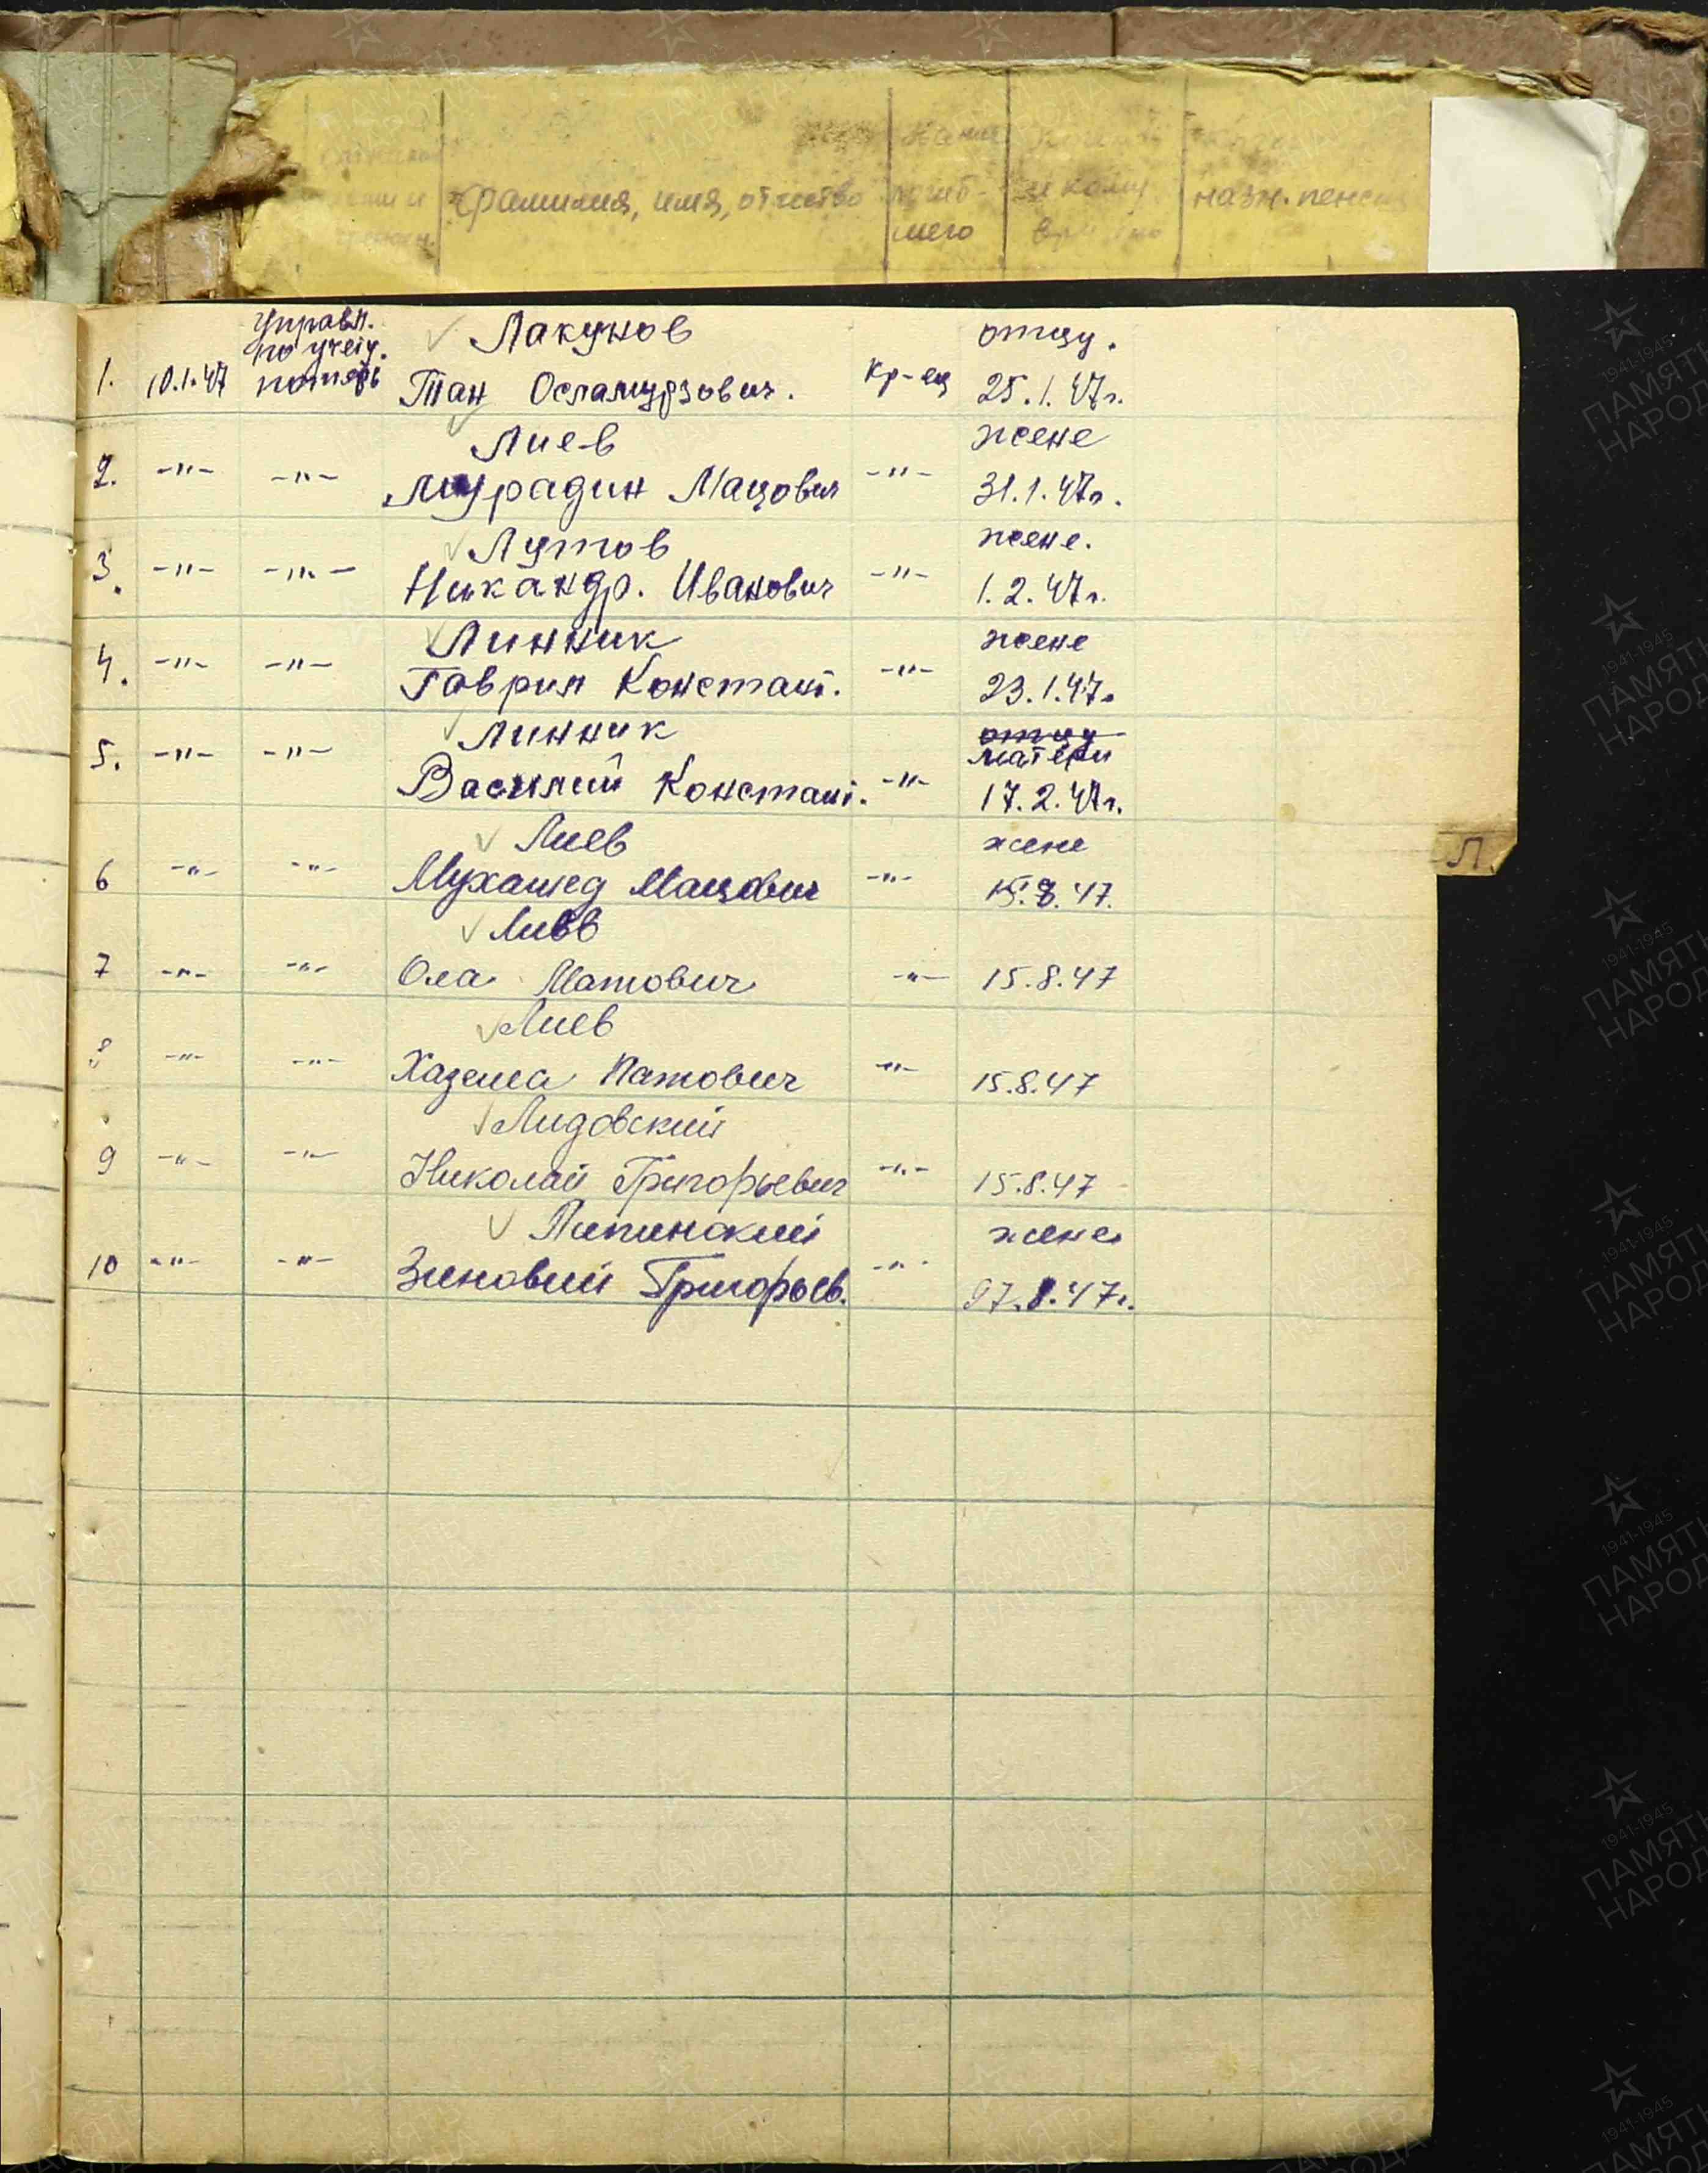 фамилия, имя, отчество
погиб-
шего
и кому
назн. пенс
Управл.
по учету
потерь
1. 10.1.47 Лакунов отцу.
Тан Осламурзович. Кр-ец 25.1.47г.
2. -"- -"- Лиев жене
Мурадин Мацович -"- 31.1.47г.
3. -"- -"- Лутов жене.
Никандр. Иванович -"- 1.2.47г.
4. -"- -"- Линник жене
Гаврил Констант. -"- 23.1.47г
5. -"- -"- Линник отцу
матери
Василий Констант. -"- 17.2.47г.
6 -"- -"- Лиев жене
Мухамед Мацович -"- 15.8.47.
7 -"- -"- Лиев
Ола Матович -"- 15.8.47
8 -"- -"- Лиев
Хазеша Патович -"- 15.8.47
9 -"- -"- Лидовский
Николай Григорьевич -"- 15.8.47
10 -"- -"- Липинский жене
Зиновий Григорьев. -"- 27.8.47г.
Л.
1941-1945
ПАМЯТЬ
НАРОДА